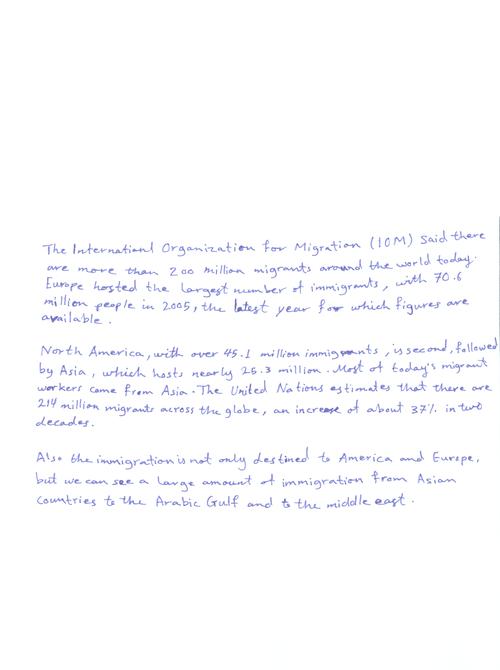 The Internationl Organization for Migration (IOM) Said there
are more than 200 million migrants around the world today.
Europe hosted the largest number of immigrants, with 70.6
million people in 2005, the latest year for which figures are
available.
North America, with over 45.1 million immigrants, is second, followed
by Asia, which hosts nearly 25.3 million. Most of today's migrant
workers come from Asia. The United Nations estimates that there are
214 million migrants across the globe, an increase of about 37% in two
decades.
Also the immigration is not only destined to America and Europe,
but we can see a large amount of immigration from Asian
countries to the Arabic Gulf and to the middle east.